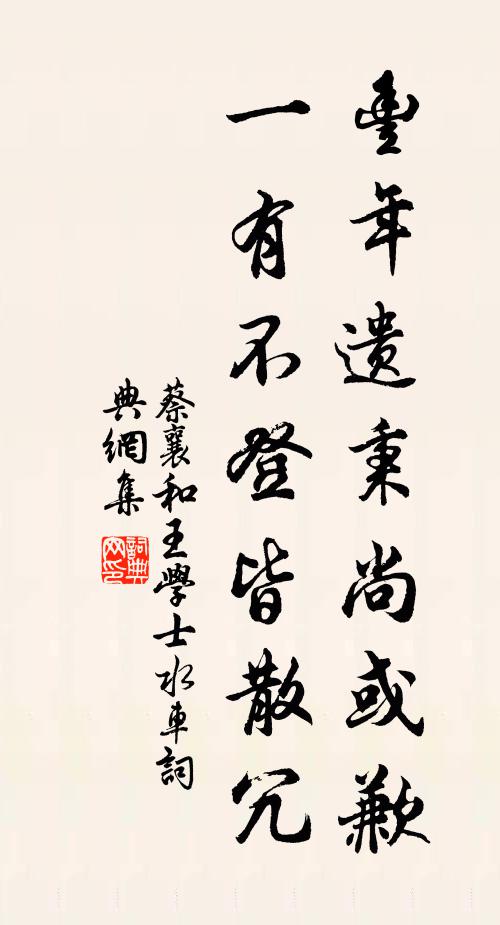 豐年遺秉尚或歉
一有不登皆散冗
蔡襄和王學士水車詞
典網集
詞典网印